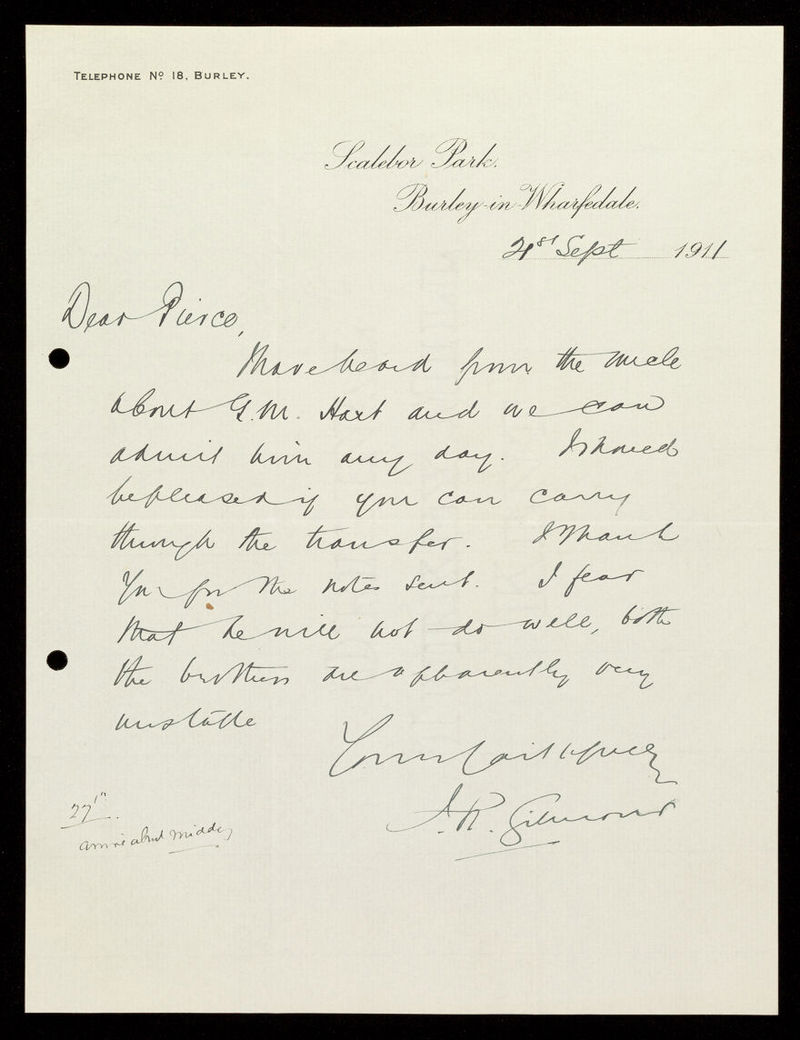 TELEPHONE No 18, BURLEY.
Scalebor Park.
Burley-in-Wharfedale.
21st Sept 1911
Dear Pierce,
I have heard from the uncle
about G.M. Hart and we can
admit him any day. I should
be pleased if you can carry
through the transfer. I thank
you for the notes sent. I fear
that he will not do well, both
the brothers are apparently very
unstable
Yours faithfully
J.R. Gilmour
27th.
arrive about midday